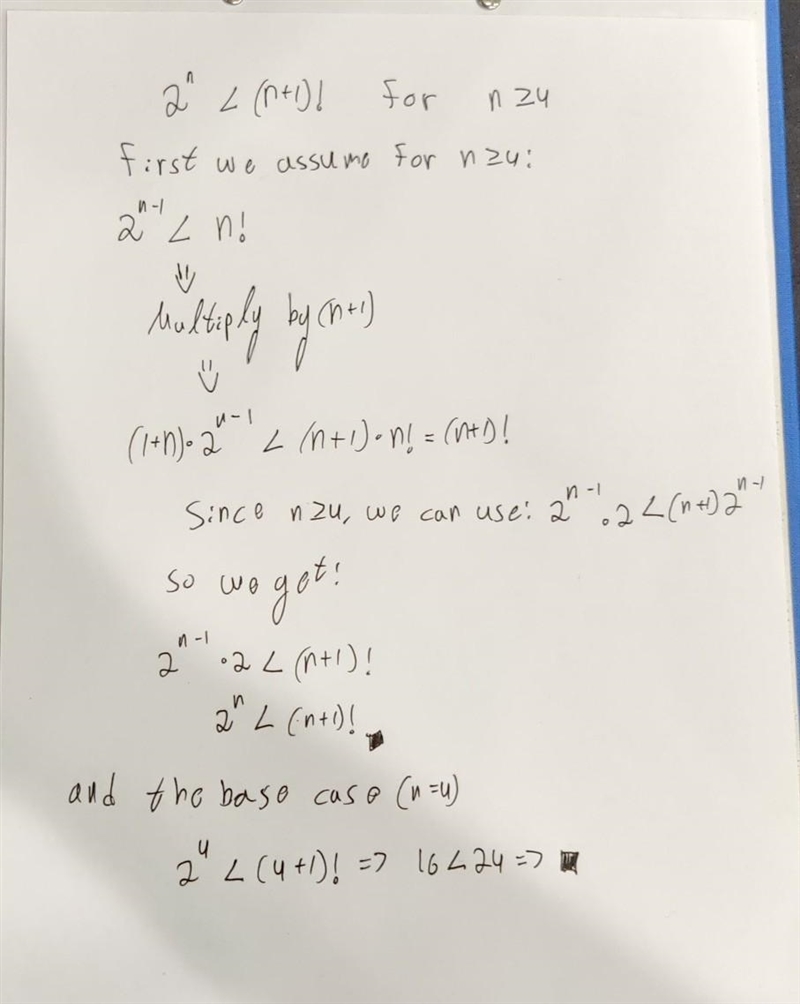 2ⁿ < (n+1)! for n ≥ 4
First we assume for n ≥ 4:
2ⁿ⁻¹ < n!
⇓
Multiply by (n+1)
⇓
(1+n)·2ⁿ⁻¹ < (n+1)·n! = (n+1)!
Since n ≥ 4, we can use: 2ⁿ⁻¹·2 < (n+1)2ⁿ⁻¹
so we get!
2ⁿ⁻¹·2 < (n+1)!
2ⁿ < (n+1)! ■
and the base case (n=4)
2⁴ < (4+1)! => 16 < 24 => ■